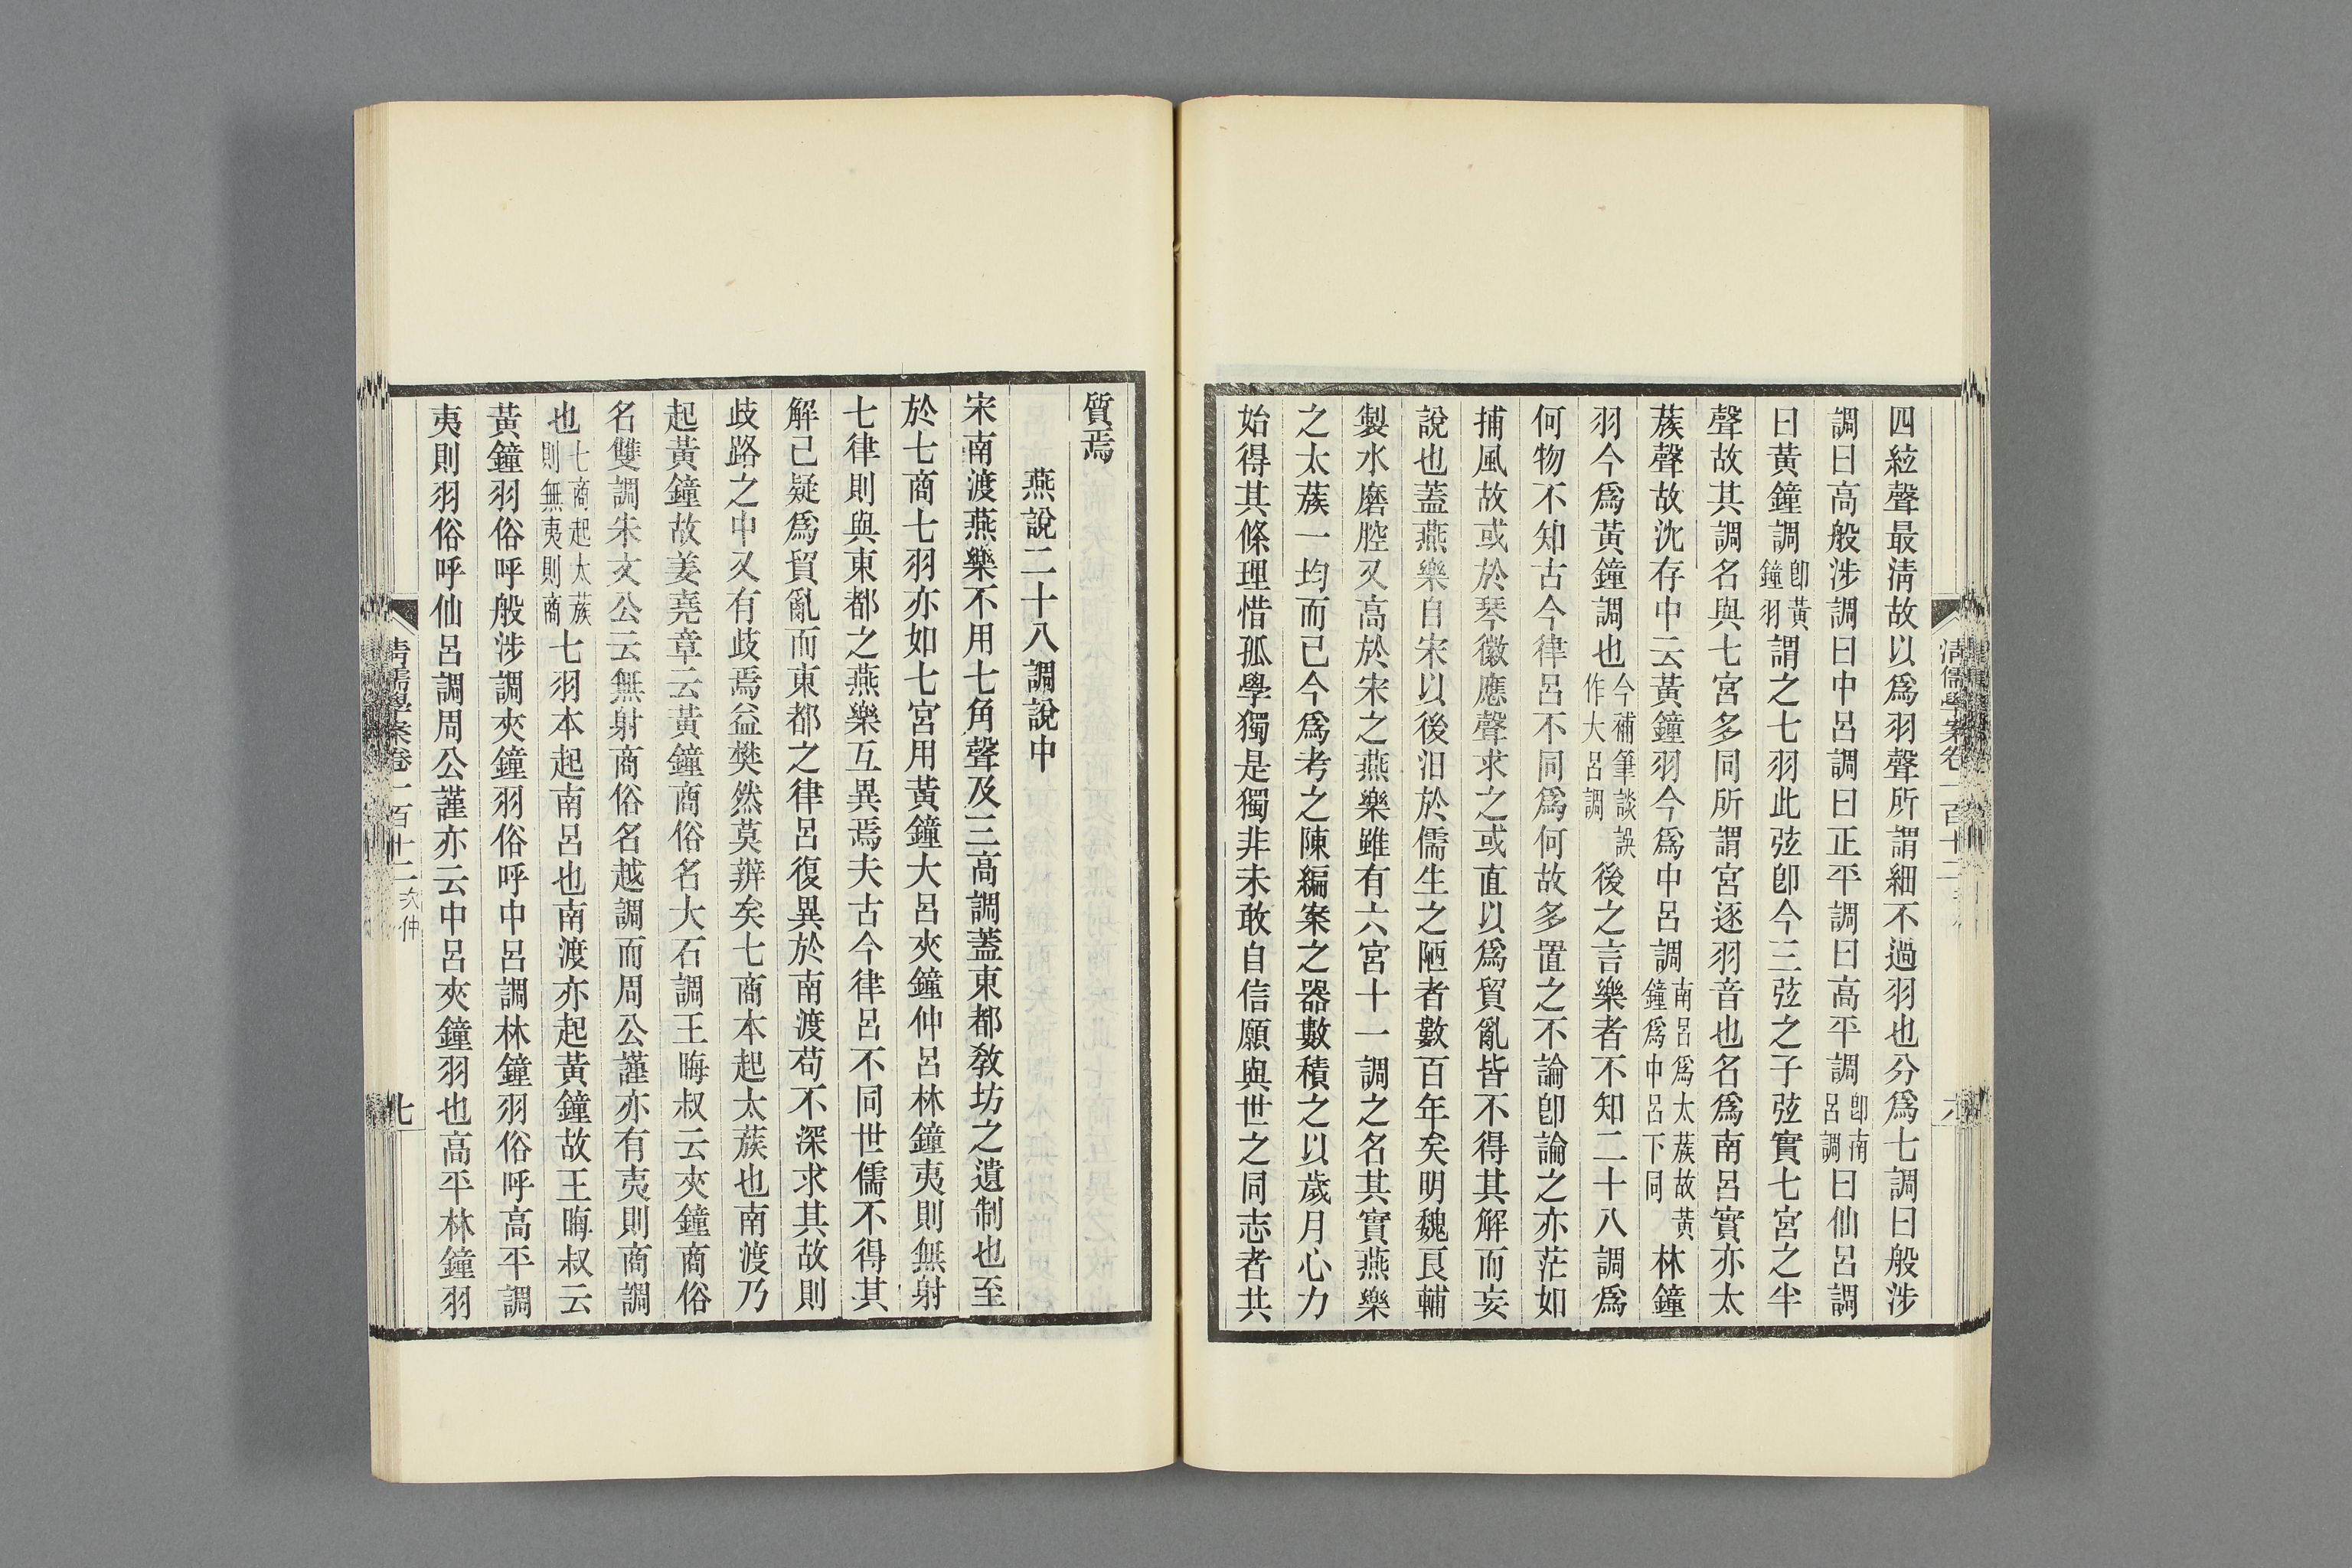 四絃聲最淸故以爲羽聲所謂細不過羽也分爲七調曰般涉
調曰高般涉調曰中呂調曰正平調曰高平調卽南呂調曰仙呂調
曰黃鐘調卽黃鐘羽謂之七羽此弦卽今三弦之子弦實七宮之半
聲故其調名與七宮多同所謂宮逐羽音也名爲南呂實亦太
蔟聲故沈存中云黃鐘羽今爲中呂調南呂爲太蔟故黃鐘爲中呂下同林鐘
羽今爲黃鐘調也今補筆談誤作大呂調後之言樂者不知二十八調爲
何物不知古今律呂不同爲何故多置之不論卽論之亦茫如
捕風故或於琴徽應聲求之或直以爲貿亂皆不得其解而妄
說也蓋燕樂自宋以後汨於儒生之陋者數百年矣明魏良輔
製水磨腔又高於宋之燕樂雖有六宮十一調之名其實燕樂
之太蔟一均而已今爲考之陳編案之器數積之以歲月心力
始得其條理惜孤學獨是獨非未敢自信願與世之同志者共
淸儒學案卷一百十二
質焉
燕說二十八調說中
宋南渡燕樂不用七角聲及三高調蓋東都敎坊之遺制也至
於七商七羽亦如七宮用黃鐘大呂夾鐘仲呂林鐘夷則無射
七律則與東都之燕樂互異焉夫古今律呂不同世儒不得其
解已疑爲貿亂而東都之律呂復異於南渡苟不深求其故則
歧路之中又有歧焉益樊然莫辨矣七商本起太蔟也南渡乃
起黃鐘故姜堯章云黃鐘商俗名大石調王晦叔云夾鐘商俗
名雙調朱文公云無射商俗名越調而周公謹亦有夷則商調
也七商起太蔟則無夷則商七羽本起南呂也南渡亦起黃鐘故王晦叔云
黃鐘羽俗呼般涉調夾鐘羽俗呼中呂調林鐘羽俗呼高平調
夷則羽俗呼仙呂調周公謹亦云中呂夾鐘羽也高平林鐘羽
淸儒學案卷一百十二 次仲
七